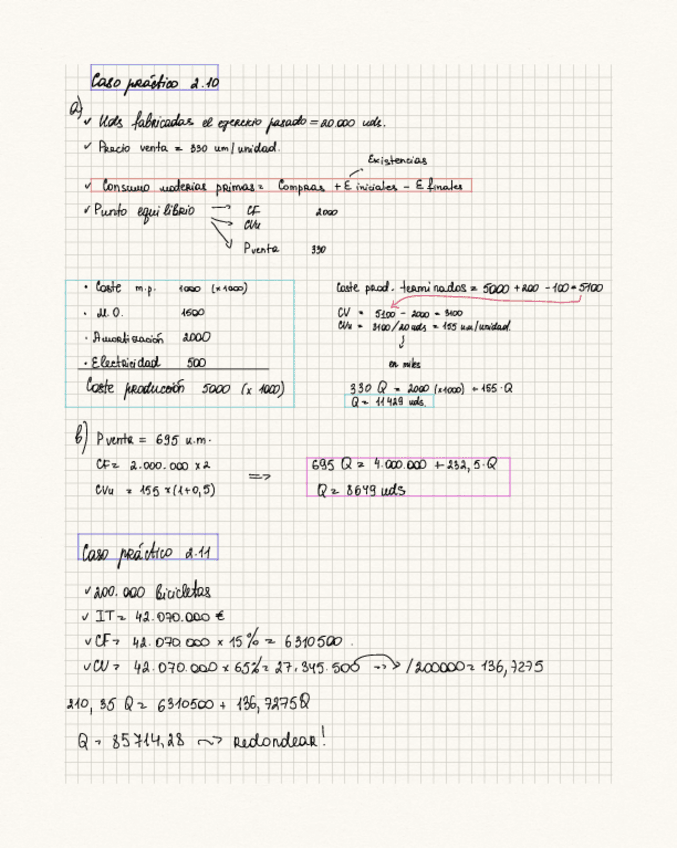 Caso práctico 2.10
a)
✓ Uds fabricadas el ejercicio pasado = 20.000 uds.
✓ Precio venta = 330 um/unidad.
Existencias
✓ Consumo materias primas = Compras + E iniciales - E finales
✓ Punto equilibrio → CF 2000
CVu
Pventa 330
• Coste m.p. 1000 (x1000)
• M.O. 1500
• Amortización 2000
• Electricidad 500
Coste producción 5000 (x 1000)
Coste prod. terminados = 5000 + 200 - 100 = 5100
CV = 5100 - 2000 = 3100
CVu = 3100/20 uds = 155 um/unidad.
en miles
330 Q = 2000 (x1000) + 155·Q
Q = 11429 uds.
b) Pventa = 695 u.m.
CF = 2.000.000 x 2
CVu = 155 x (1+0,5)
=>
695 Q = 4.000.000 + 232,5·Q
Q = 8649 uds
Caso práctico 2.11
✓ 200.000 Bicicletas
✓ IT = 42.070.000 €
✓ CF = 42.070.000 x 15% = 6310500.
✓ CV = 42.070.000 x 65% = 27.345.500 → /200000 = 136,7275
210,35 Q = 6310500 + 136,7275Q
Q = 85714,28 → Redondear!